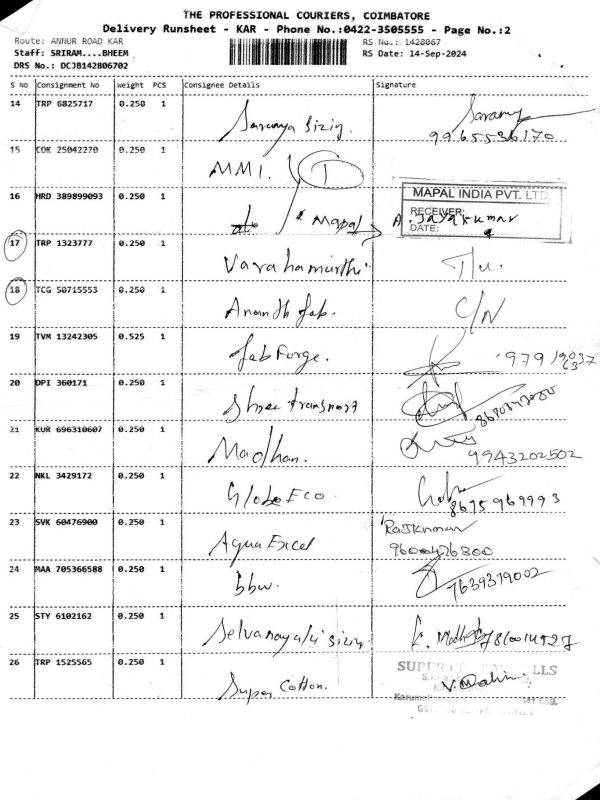 THE PROFESSIONAL COURIERS, COIMBATORE
Delivery Runsheet - KAR - Phone No.:0422-3505555 - Page No.:2
Route: ANNUR ROAD KAR
RS No.: 1428067
Staff: SRIRAM....BHEEM
RS Date: 14-Sep-2024
DRS No.: DCJB142806702
S No Consignment No Weight PCS Consignee Details Signature
14 TRP 6825717 0.250 1 Saranya Sizing. Sarany
9965536170
15 COK 25042270 0.250 1 MMI. 1
MAPAL INDIA PVT. LTD.
16 HRD 389899093 0.250 1 Mapal RECEIVER: A. Jayakumar
DATE:
17 TRP 1323777 0.250 1 Varahamurthi
18 TCG 50715553 0.250 1 Anandh fab. C/N
19 TVM 13242305 0.525 1 fab Forge.
20 DPI 360171 0.250 1 Shree transport
21 KUR 696310607 0.250 1 Madhan. 9943202502
22 NKL 3429172 0.250 1 Globe Eco. 8675969993
23 SVK 60476900 0.250 1 Aqua Excel Rajkumar
9600426300
24 MAA 705366588 0.250 1 bbw. 7639319002
25 STY 6102162 0.250 1 Selvanayaki sizing
26 TRP 1525565 0.250 1 Super Cotton. V. Malini
SUPER